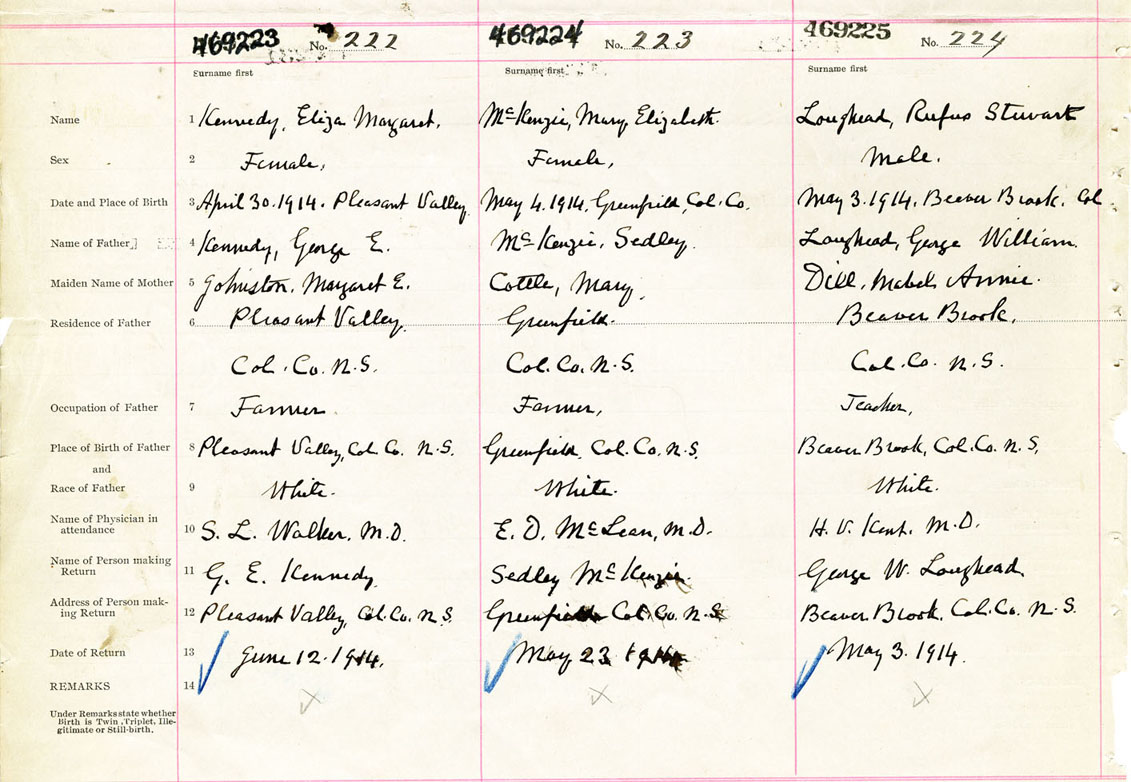 469223 No. 222 469224 No. 223 469225 No. 224
Surname first Surname first Surname first
Name 1 Kennedy, Eliza Margaret. McKenzie, Mary Elizabeth. Loughead, Rufus Stewart
Sex 2 Female, Female, Male.
Date and Place of Birth 3 April 30.1914. Pleasant Valley. May 4.1914, Greenfield, Col. Co. May 3.1914, Beaver Brook, Col
Name of Father 4 Kennedy, George E. McKenzie, Sedley. Loughead, George William.
Maiden Name of Mother 5 Johnston, Margaret E. Cottle, Mary, Dill, Mabel Annie.
Residence of Father 6 Pleasant Valley. Greenfield. Beaver Brook,
Col. Co. N.S. Col. Co. N.S. Col. Co. N.S.
Occupation of Father 7 Farmer. Farmer, Teacher,
Place of Birth of Father 8 Pleasant Valley, Col. Co. N.S. Greenfield, Col. Co. N.S. Beaver Brook, Col. Co. N.S.
and
Race of Father 9 White. White. White.
Name of Physician in
attendance 10 S. L. Walker, M.D. E. D. McLean, M.D. H. V. Kent, M.D.
Name of Person making
Return 11 G. E. Kennedy. Sedley McKenzie. George W. Loughead.
Address of Person mak-
ing Return 12 Pleasant Valley, Col. Co. N.S. Greenfield Col. Co. N.S. Beaver Brook, Col. Co. N.S.
Date of Return 13 June 12.1914. May 23 1914 May 3.1914.
REMARKS 14
Under Remarks state whether
Birth is Twin, Triplet, Ille-
gitimate or Still-birth.